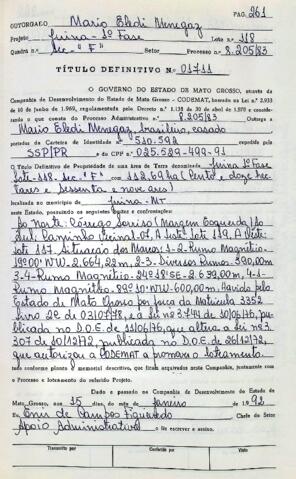 PAG. 261
OUTORGADO Mario Eledi Menegaz
Projeto Juina - 1ª Fase Lote n. 118
Quadra n. Sec. "F" Setor Processo n. 8.205/83
TÍTULO DEFINITIVO Nº 01711
O GOVERNO DO ESTADO DE MATO GROSSO, através da
Companhia de Desenvolvimento do Estado de Mato Grosso - CODEMAT, com base na Lei n.º 2.933
de 10 de Junho de 1969, regulamentada pelo Decreto n.º 1.138 de 30 de abril de 1970 e considerando
o que consta do Processo Administrativo n.º 8.205/83 Outorga a
Mario Eledi Menegaz, brasileiro, casado
portador da Carteira de Identidade n.º 510.592 expedida pela
SSP/PR e do CPF n.º 025.529.499-91
O Título Definitivo de Propriedade de uma área de Terra denominada Juina 1ª Fase
Lote-118. Sec. "F" com 112,69 ha (Cento e doze hec
tares e sessenta e nove ares)
localizada no município de Juina - MT
neste Estado, possuindo os seguintes limites e confrontações:
Ao Norte: Córrego Sorriso (Margem Esquerda) Ao
Sul: Caminho Vicinal-07, A Leste: Lote 119, A Oeste:
Lote 117. Situação dos Marcos: 1-2-Rumo Magnético-
19º00'NW-2.664,22 m, 2-3-Diversos Rumos-590,00m
3-4-Rumo Magnético-24º18'SE-2.699,00m, 4-1-
Rumo Magnético-89º10'NW-600,00m. Havido pelo
Estado de Mato Grosso por força da Matrícula 3352
livro 2E de 03/07/78, e a Lei nº 3.744 de 10/06/76, pu
blicada no D.O.E. de 11/06/76, que altera a Lei nº 3.
307 de 10/12/72, publicada no D.O.E. de 26/12/72,
que autorizou a CODEMAT a promover o loteamento.
tudo conforme planta e memorial descritivo, que ficam arquivados nesta Companhia, juntamente com
o Processo e loteamento do referido Projeto.
Dado e passado na Companhia de Desenvolvimento do Estado de
Mato Grosso, aos 15 dias, do mês de Janeiro de 1992
Eu Enir de Campos Figueiredo Chefe do Setor
Apoio Administrativo o fiz escrever e assino.
Transcrito por Conferido por Visto